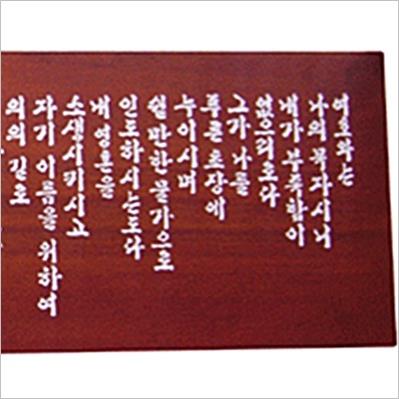 여호와는
나의 목자시니
내가 부족함이
없으리로다
그가 나를
푸른 초장에
누이시며
쉴 만한 물가으로
인도하시는도다
내 영혼을
소생시키시고
자기 이름을 위하여
의의 길로